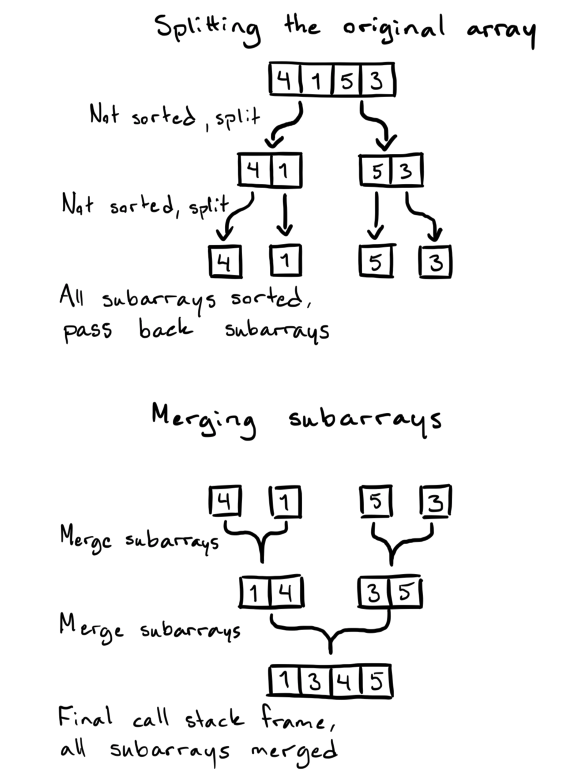 Splitting the original array
4 1 5 3
Not sorted, split
4 1 5 3
Not sorted, split
4 1 5 3
All subarrays sorted,
pass back subarrays
Merging subarrays
4 1 5 3
Merge subarrays
1 4 3 5
Merge subarrays
1 3 4 5
Final call stack frame,
all subarrays merged